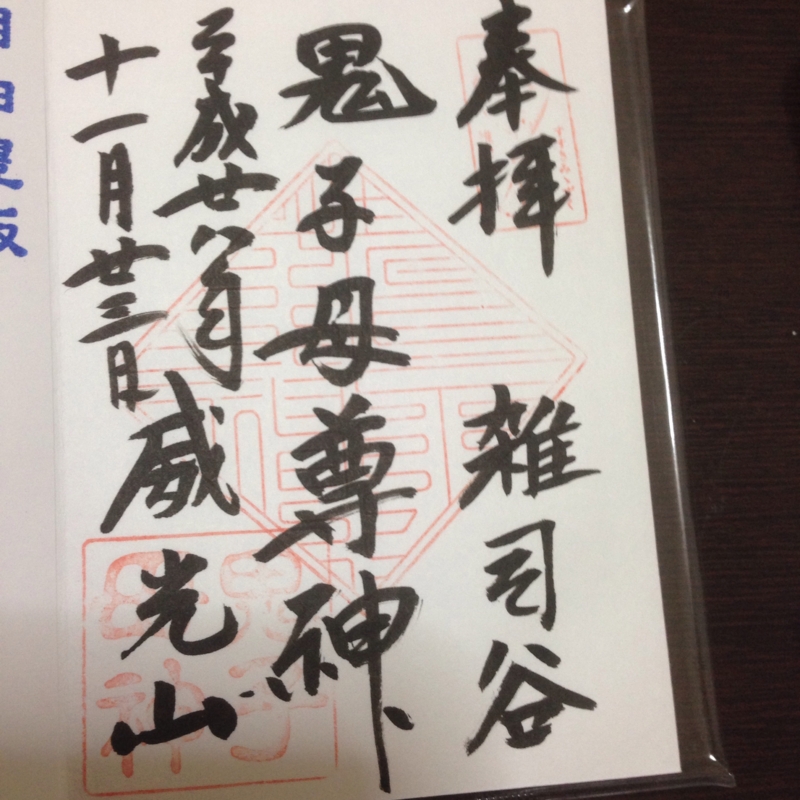 奉拝 雑司谷
鬼子母尊神
平成廿八年
十一月廿三日
威光山